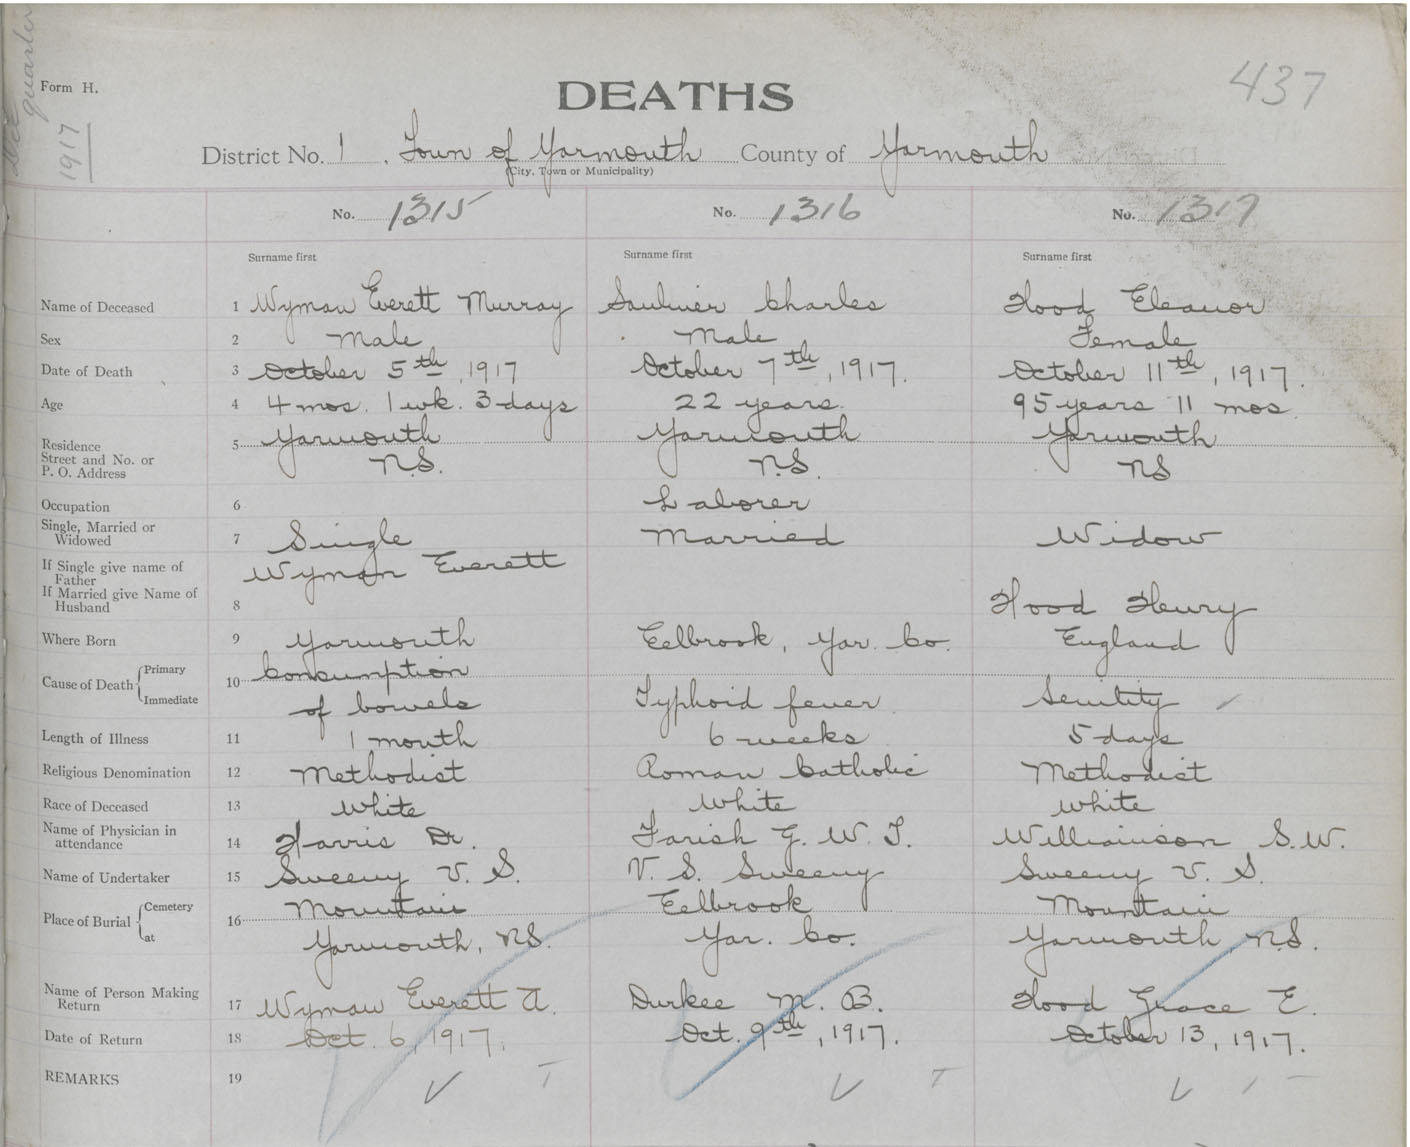 Dec quarter
1917
437
Form H.
DEATHS
District No. 1. Town of Yarmouth County of Yarmouth
(City, Town or Municipality)
No. 1315 No. 1316 No. 1317
Surname first Surname first Surname first
Name of Deceased 1 Wyman Everett Murray Saulnier Charles Hood Eleanor
Sex 2 Male Male Female
Date of Death 3 October 5th, 1917 October 7th, 1917. October 11th, 1917.
Age 4 4 mos. 1 wk. 3 days 22 years. 95 years 11 mos.
Residence 5 Yarmouth Yarmouth Yarmouth
Street and No. or
P. O. Address N.S. N.S. NS
Occupation 6 Laborer
Single, Married or
Widowed 7 Single Married Widow
If Single give name of
Father Wyman Everett
If Married give Name of
Husband 8 Hood Henry
Where Born 9 Yarmouth Eelbrook, Yar. Co. England
Cause of Death Primary 10 Consumption
Immediate of bowels Typhoid fever Senility
Length of Illness 11 1 month 6 weeks 5 days
Religious Denomination 12 Methodist Roman Catholic Methodist
Race of Deceased 13 White White White
Name of Physician in
attendance 14 Harris Dr. Farish G. W. T. Williamson S. W.
Name of Undertaker 15 Sweeny V. S. V. S. Sweeny Sweeny V. S.
Place of Burial Cemetery 16 Mountain Eelbrook Mountain
at Yarmouth, NS. Yar. Co. Yarmouth N.S.
Name of Person Making
Return 17 Wyman Everett A. Durkee M. B. Hood Grace E.
Date of Return 18 Oct. 6, 1917. Oct. 9th, 1917. October 13, 1917.
REMARKS 19